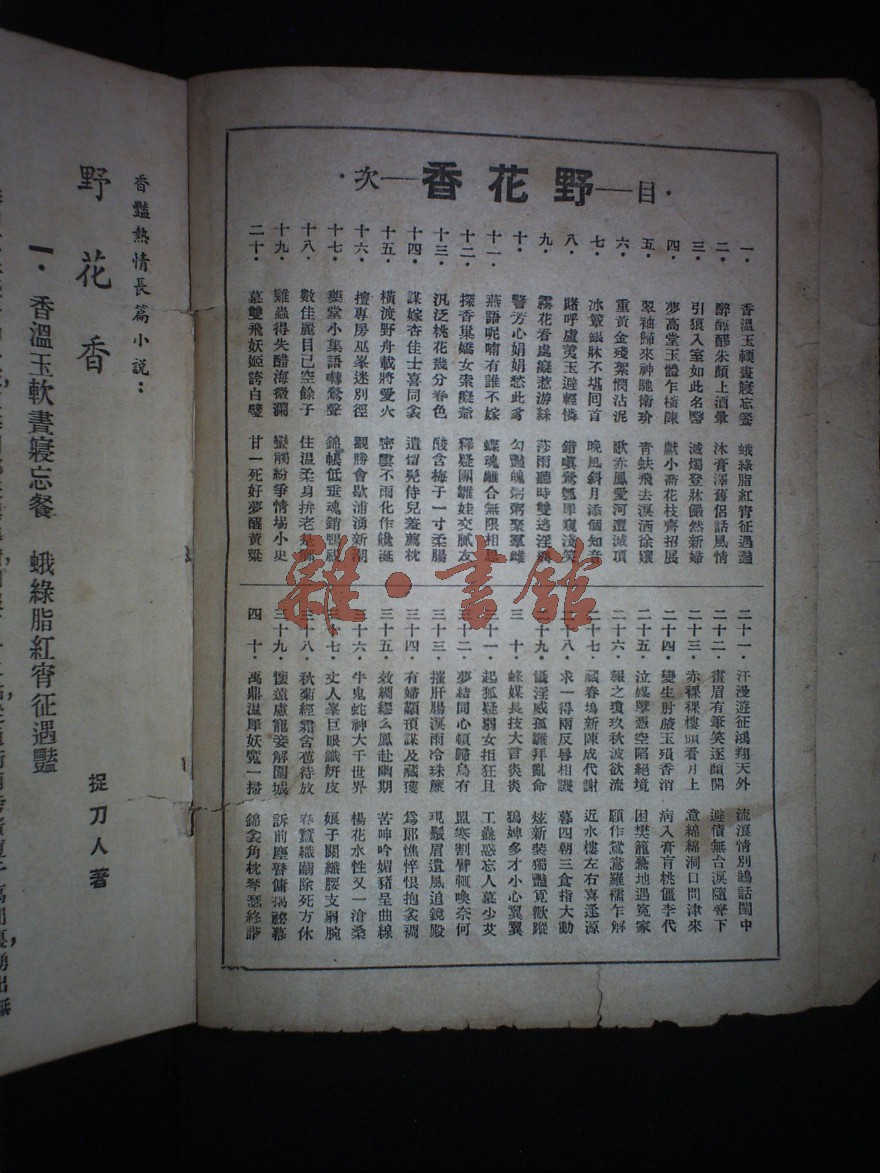 目—野花香—次
一・ 香溫玉輭晝寢忘餐 蛾綠脂紅宵征遇豔
二・ 醉醇醪朱顏上酒暈 沐膏澤舊侶話風情
三・ 引狼入室如此名醫 滅燭登牀儼然新婦
四・ 夢高堂玉體乍橫陳 獻小齋花枝齊招展
五・ 翠袖歸來神馳衛玠 青蚨飛去淚洒徐孃
六・ 重黃金殘絮憫沾泥 歌赤鳳愛河遭滅頂
七・ 冰簟銀牀不堪回首 晚風斜月添個知音
八・ 賭呼盧荑玉逞輕憐 錯嗔鶯瓠犀窺淺笑
九・ 霧花看處癡惹游絲 莎雨聽時雙逃淫
十・ 警芳心娟娟愁此豸 勾豔魄粥粥聚羣雌
十一・ 燕語呢喃有誰不嫁 蝶魂離合無限相思
十二・ 探香巢嬌女索癡爺 釋疑團雛娃交膩友
十三・ 汎泛桃花幾分春色 酸含梅子一寸柔腸
十四・ 謀嫁杏佳士喜同衾 遺留髡侍兒羞薦枕
十五・ 橫渡野舟載將愛火 密雲不雨化作饞涎
十六・ 擅專房巫峯迷別徑 觀勝會歇浦湧新潮
十七・ 藥堂小集語囀鶯聲 錦帳低垂魂銷
十八・ 數佳麗目已空餘子 住溫柔身拚老是鄉
十九・ 雞蟲得失醋海微瀾 蠻觸紛爭情場小史
二十・ 墓雙飛妖姬誇白璧 甘一死好夢醒黃粱
二十一・ 汗漫遊征鴻翔天外 流浪情別鵠話閨中
二十二・ 畫眉有筆笑逐顏開 避債無台淚隨聲下
二十三・ 赤裸裸樓頭看月上 意綿綿洞口問津來
二十四・ 變生肘腋玉殞香消 病入膏肓桃僵李代
二十五・ 泣媒孽憑空陷絕境 困樊籠驀地遇冤家
二十六・ 報之瓊玖秋波欲流 願作鴛鴦羅襦乍解
二十七・ 藏春塢新陳成代謝 近水樓左右喜逢源
二十八・ 求一得兩反唇相譏 暮四朝三食指大動
二十九・ 懾淫威孤雛拜亂命 炫新裝獨豔覓獸蹤
三十・ 蜂媒長技大言炎炎 鴉婢多才小心翼翼
三十一・ 起狐疑弱女拒狂且 工蠱惑忘人慕少艾
三十二・ 夢結同心頓歸烏有 盟寒割臂輒喚奈何
三十三・ 摧肝腸淚雨冷珠簾 現鬚眉遺風追鏡殿
三十四・ 有婦顢頇謀及藏獲 爲郎憔悴恨抱衾裯
三十五・ 效綢繆么鳳赴幽期 苦呻吟媚豬呈曲線
三十六・ 牛鬼蛇神大千世界 楊花水性又一滄桑
三十七・ 丈人峯巨眼識妍皮 娘子關纖腰支弱腕
三十八・ 秋菊經霜含苞待放 春蠶織繭除死方休
三十九・ 懷遠慮寵妾解圍城 訴前塵脊傭揭祕幕
四十・ 禹鼎溫犀妖冤一掃 錦衾角枕琴瑟終諧
香豔熱情長篇小說：
野花香
捉刀人著
一・香溫玉軟晝寢忘餐 蛾綠脂紅宵征遇豔
雜・書館